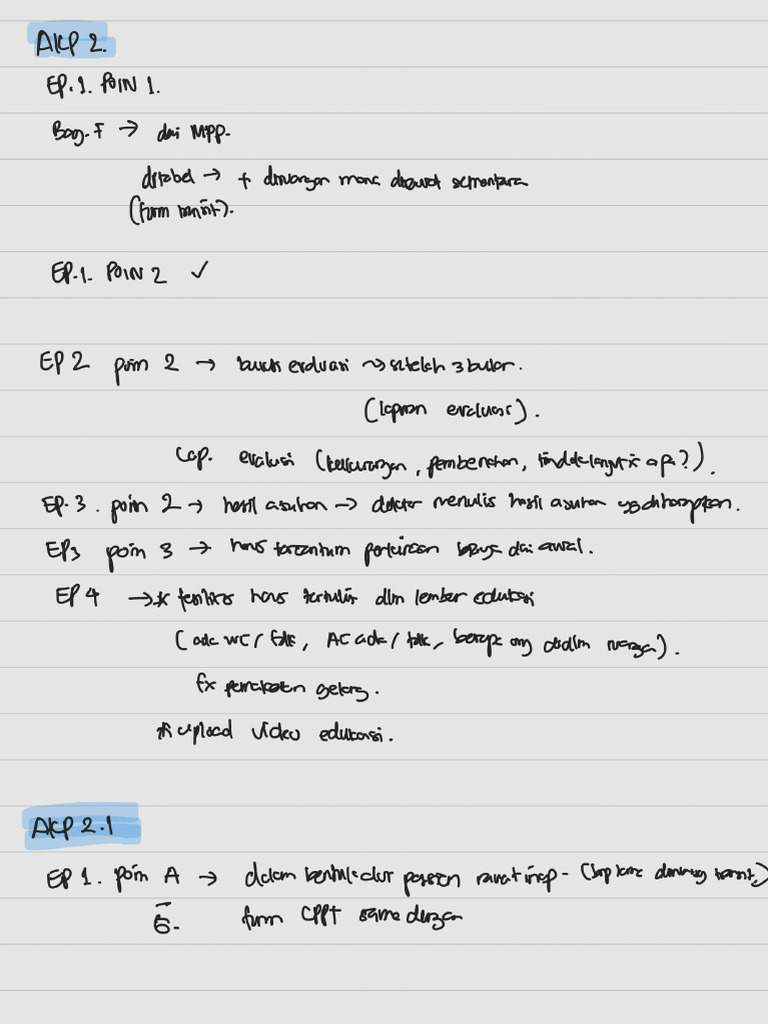 AKP 2.
EP. 1. POIN 1.
Bag. F → dari MPP.
ditabel → + diruangan mana dirawat sementara
(form transit).
EP. 1. POIN 2 ✓
EP 2 poin 2 → bukti evaluasi → setelah 3 bulan.
(laporan evaluasi).
Lap. evaluasi (kekurangan, pembenahan, tindak lanjutx apa?).
EP. 3. poin 2 → hasil asuhan → dokter menulis hasil asuhan yg diharapkan.
EP3 poin 3 → harus tercantum perkiraan biaya dari awal.
EP 4 → * fasilitas harus tertulis dlm lembar edukasi
(ada WC / tdk, AC ada / tdk, berapa org didlm ruangan).
fx pemakaian gelang.
* upload video edukasi.
AKP 2.1
EP 1. poin A → dalam bentuk alur pasien rawat inap -
6. form CPPT sama dengan